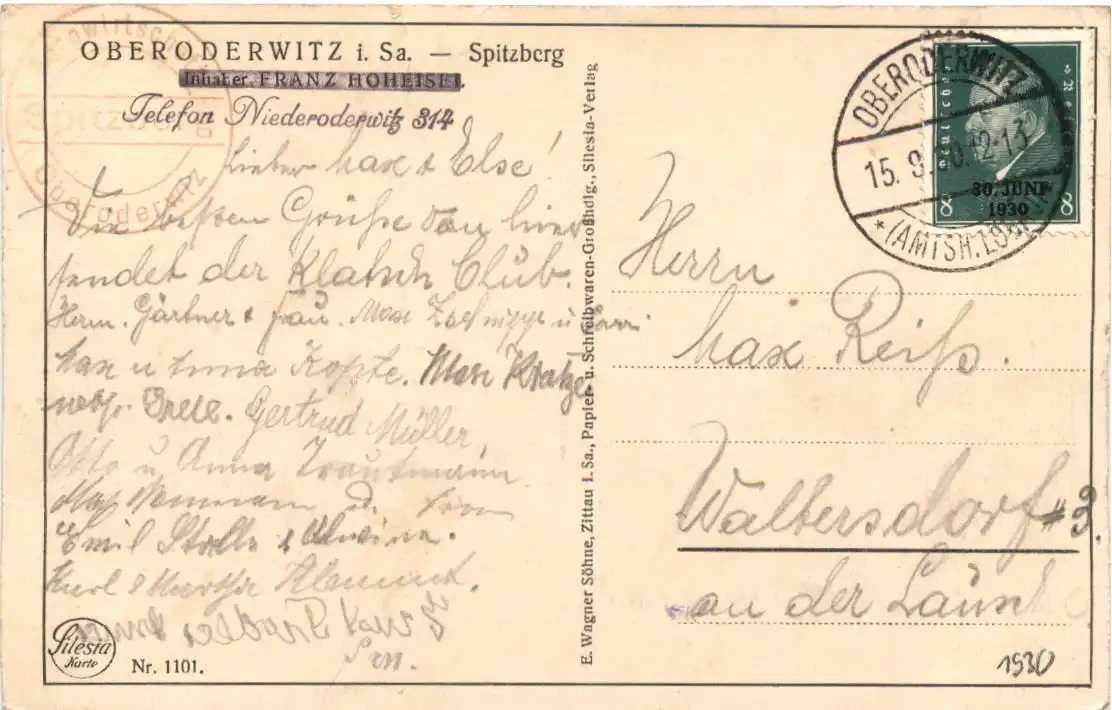 OBERODERWITZ i. Sa. — Spitzberg
Inhaber FRANZ HOHEISEL.
Telefon Niederoderwitz 314
Spitzberg
Oberoderwitz
Lieber Max & Else!
Die besten Grüße von hier
sendet der Klatsch Club.
Herm. Gärtner & Frau. Max u
Max u Kopte. Max
Grete. Gertrud Müller
Otto u Anna Trautmann
Max
Emil Stolle &
Karl & Martha
Silesia
Karte
Nr. 1101.
E. Wagner Söhne, Zittau i. Sa., Papier- u. Schreibwaren-Großhdlg., Silesia-Verlag
OBERODERWITZ
15. 9. 30. 12-13
* (AMTSH. LÖB
Deutsches Reich
30. JUNI
1930
8 8
Herrn
Max Reiß.
Waltersdorf #3.
an der Lausche
1930